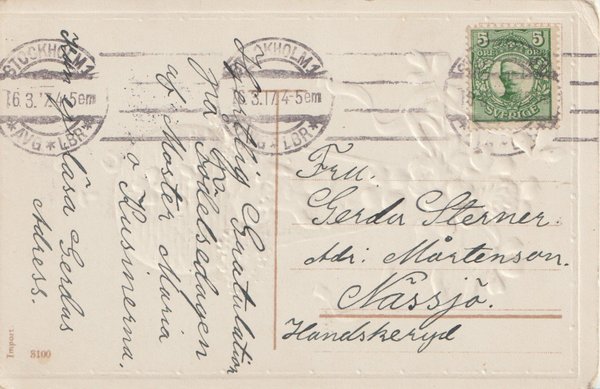 STOCKHOLM 1
16.3.17.4-5em
*AVG*LBR*
STOCKHOLM 1
16.3.17.4-5em
*AVG*LBR*
5 5
ÖRE
SVERIGE
Hjertlig Gratulation
på Födelsedagen
af Moster Maria
o Kusinerna.
Kan ej läsa Gerdas
Adress.
Fru.
Gerda Sterner.
Adr. Mårtenson.
Nässjö.
Handskeryd
Import
8100